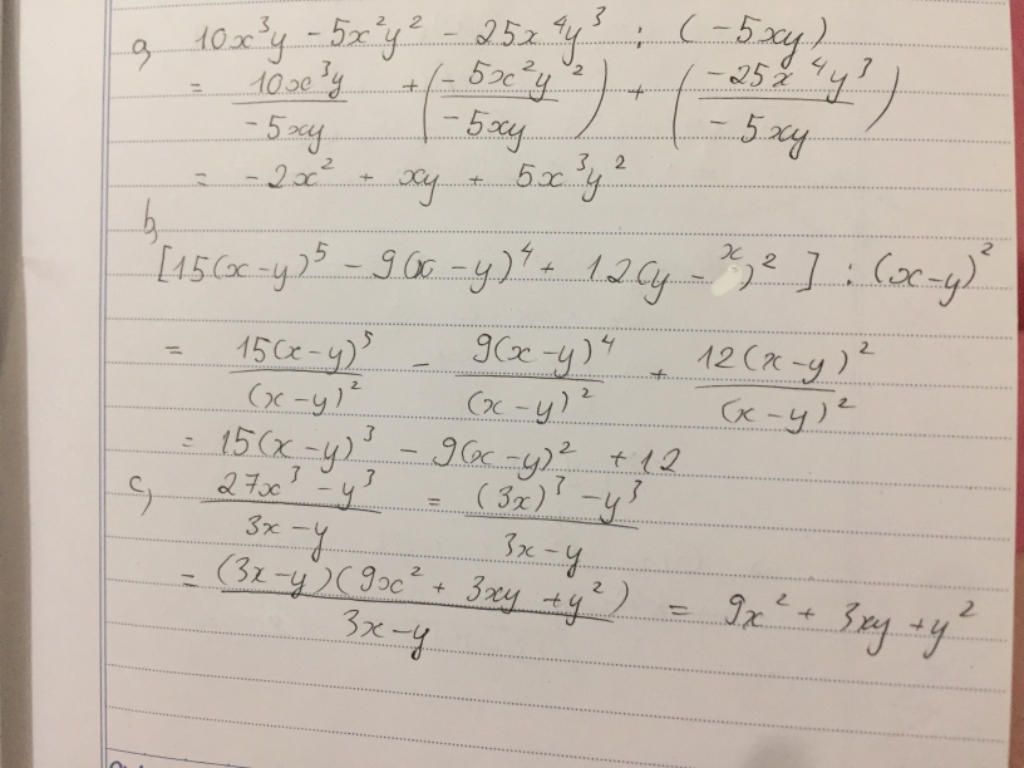 a, 10x³y - 5x²y² - 25x⁴y³ : (-5xy)
= 10x³y/-5xy + (-5x²y²/-5xy) + (-25x⁴y³/-5xy)
= -2x² + xy + 5x³y²
b,
[15(x-y)⁵ - 9(x-y)⁴ + 12(y-x)²] : (x-y)²
= 15(x-y)⁵/(x-y)² - 9(x-y)⁴/(x-y)² + 12(x-y)²/(x-y)²
= 15(x-y)³ - 9(x-y)² + 12
c, 27x³-y³/3x-y = (3x)³-y³/3x-y
= (3x-y)(9x²+3xy+y²)/3x-y = 9x²+3xy+y²